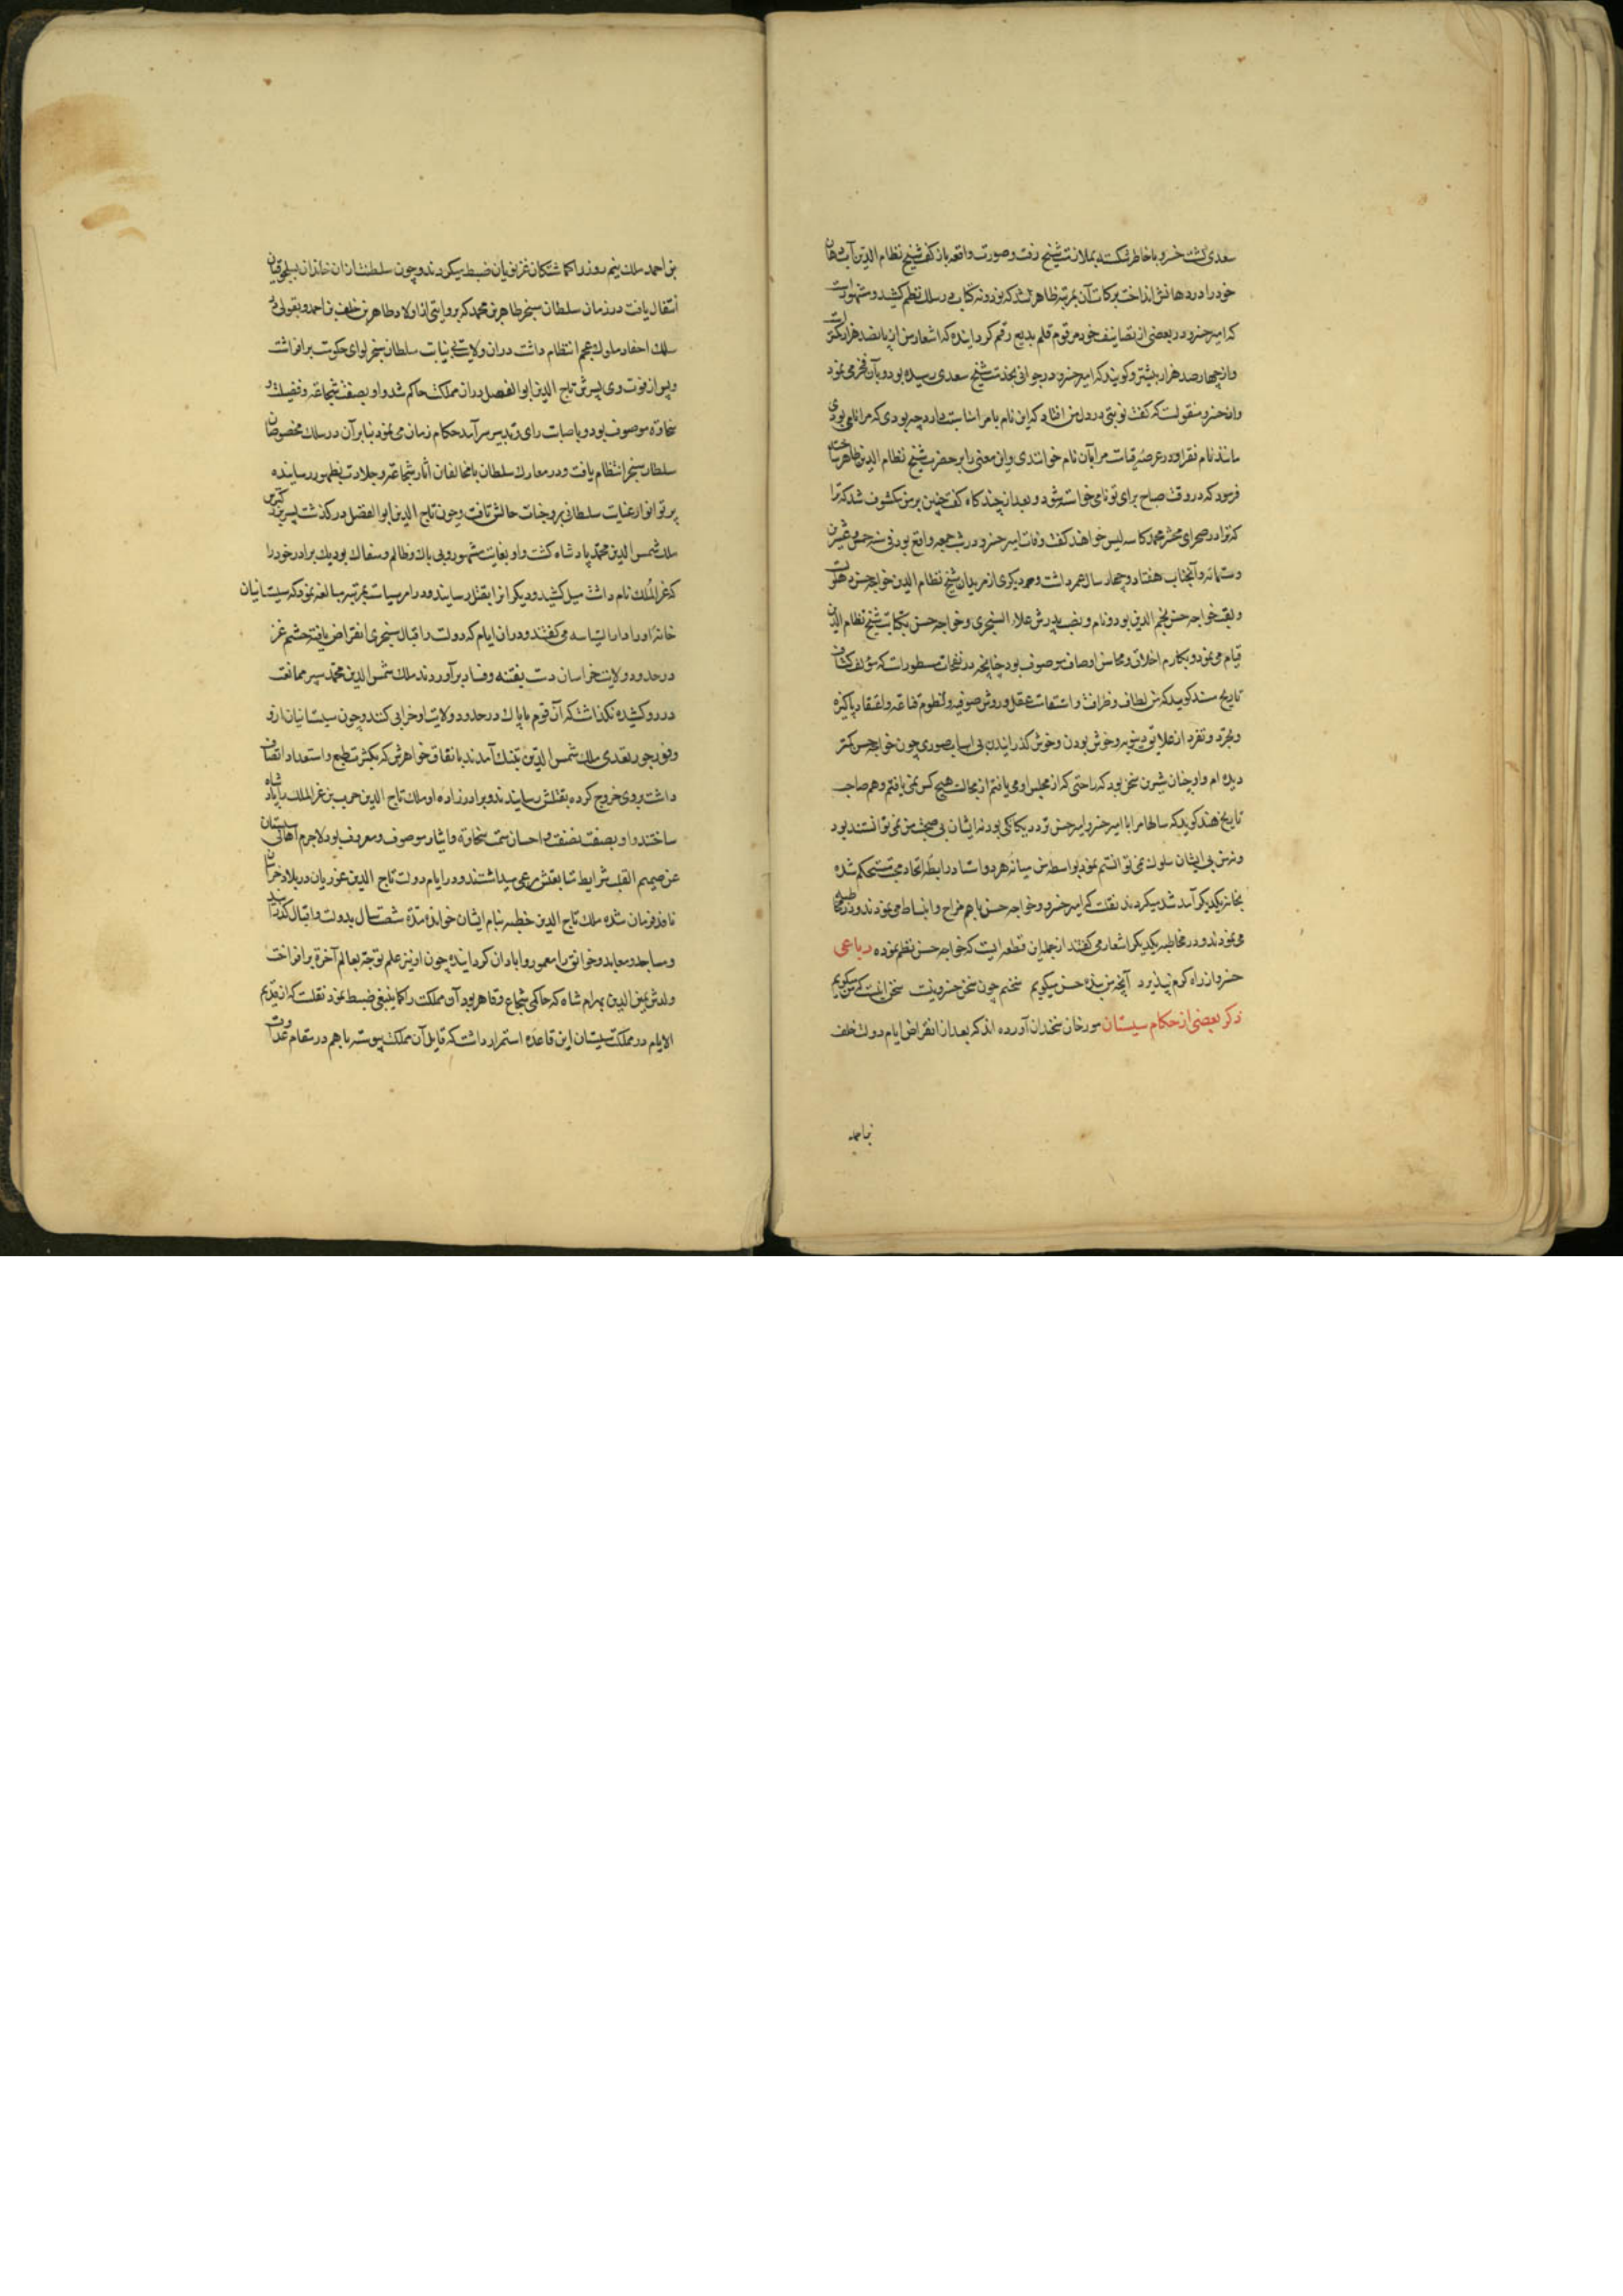 سعدی گشت خسرو با خاطر شکسته بملازمت شیخ رفت و صورت واقعه باز گفت شیخ نظام الدین آب دهان
خود را در دهانش انداخت برکات آن بمرتبه ظاهر شد که نود و نه کتاب در سلک نظم کشید و مشهور است
که امیر خسرو در بعضی از تصانیف خود مرقوم قلم بدیع رقم گردانیده که اشعار من از پانصد هزار کمتر است
و از چهارصد هزار بیشتر و گویند که امیر خسرو در جوانی بخدمت شیخ سعدی رسیده بود و بآن فخر می نمود
و از خسرو منقولست که گفت نوبتی در دل من افتاد که این نام بامرا مناسبت دارد چه بودی که مرا نامی بودی
مانند نام فقرا و در عرصه قیامت مرا بآن نام خواندندی و این معنی را بر حضرت شیخ نظام الدین ظاهر ساخته
فرمود که در وقت صباح برای تو نامی خواسته شود و بعد از چندگاه گفت چنین بر من مکشوف شد که ترا
که ترا در صحرای محشر محمد کاسه لیس خواهند گفت وفات امیر خسرو در شب جمعه واقع بود فی سنه خمس و عشرین
و ستمائه و آنجناب هفتاد و چهار سال عمر داشت و دیگری از مریدان شیخ نظام الدین خواجه حسن دهلوی است
و لقب خواجه حسن نجم الدین بود و نام و نصب پدرش علاء السنجری و خواجه حسن بکتابت شیخ نظام الدین
قیام می نمود و بمکارم اخلاق و محاسن اوصاف موصوف بود چنانچه در نفحات مسطور است که مؤلف کتاب
تاریخ سند گوید که من لطافت و ظرافت و استقامت عقل و روش صوفیه و لطوم قناعه و اعتقاد پاکیزه
و تجرد و تفرد از علایق دنیویه و خوش بودن و خوش گذرانیدن بی اسباب صوری چون خواجه حسن کمتر
دیده ام و او چنان شیرین سخن بود که راحتی که از مجلس او می یافتم از مجالست هیچ کس نمی یافتم و هم صاحب
تاریخ هند گوید که سالها مرا با امیر خسرو و امیر حسن تردد و یکانکی بود نه ایشان بی صحبت من نمی توانستند بود
و نه من بی ایشان سلوک می توانستم نمود بواسطه من میانه هر دو استاد رابطه اتحاد و محبت مستحکم شده
بخانه یکدیگر آمد شد میکردند نقلست که امیر خسرو و خواجه حسن باهم مزاح و انبساط می نمودند و در
می نمودند و در مخاطبه یکدیگر اشعار می گفتند از جمله این قطعه ایست که خواجه حسن نظم نموده رباعی
خسرو از راه کرم بپذیرد آنچه من بنده حسن میگویم سخنم چون سخن خسرو نیست سخن اینست که من میگویم
ذکر بعضی از حکام سیستان مورخان سخندان آورده اند که بعد از انقراض ایام دولت خلف
بن احمد
بن احمد ملک نیم روز را گماشتگان غزنویان ضبط میکردند و چون سلطنت از آن خاندان بسلجوقیان
انتقال یافت در زمان سلطان سنجر طاهر بن محمد که بروایتی از اولاد طاهر بن خلف بن احمد و بقولی در
سلک احفاد ملوک عجم انتظام داشت در آن ولایت به نیابت سلطان سنجر لوای حکومت برافراشت
و پس از فوت وی پسرش تاج الدین ابو الفضل در آن مملکت حاکم شد و او بصفت شجاعة و فضیلت و
سخاوة موصوف بود و باصابت رای و تدبیر سرآمد حکام زمان می نمود بنابر آن در سلک مخصوصان
سلطان سنجر انتظام یافت و در معارک سلطان با مخالفان آثار شجاعة و جلادت بظهور رسانیده
پرتو انوار عنایت سلطانی بر وجنات حالش تافت و چون تاج الدین ابو الفضل درگذشت پسر بزرگترین
ملک شمس الدین محمد پادشاه گشت و او بغایت متهور و بی باک و ظالم و سفاک بود یک برادر خود را
که عز الملک نام داشت میل کشید و دیگرانرا بقتل رسانید و در امر سیاست بمرتبه مبالغه نمود که سیستانیان
خانه او را دار السیاسه می گفتند و در آن ایام که دولت و اقبال سنجری انقراض یافته حشم غز
در حدود ولایت خراسان دست بفتنه و فساد برآوردند ملک شمس الدین محمد سپر ممانعت
در رو کشیده نگذاشت که آن قوم ناپاک در حدود ولایت او خرابی کنند و چون سیستانیان از و
وفور جور و تعدی ملک شمس الدین بتنک آمدند باتفاق خواهرش که بکثرت طبع و استعداد اتصاف
داشت بروی خروج کرده بقتلش رسانیدند و برادرزاده او ملک تاج الدین حرب بن عز الملک را پادشاه
ساختند و او بصفت نصفت و احسان و سمت سخاوة و ایثار موصوف و معروف بود لاجرم اهالی سیستان
عن صمیم القلب شرایط متابعتش مرعی میداشتند و در ایام دولت تاج الدین غوریان در بلاد خراسان
نافذ فرمان شده ملک تاج الدین خطبه بنام ایشان خوانده مدة شصت سال بدولت و اقبال گذرانید
و مساجد و معابد و خوانق را معمور و ابادان گردانیده چون او نیز علم توجه بعالم آخرة برافراخت
ولدش یمین الدین بهرام شاه که حاکمی شجاع و قاهر بود آن مملکت را کما ینبغی ضبط نمود نقلست که از قدیم
الایام در مملکت سیستان این قاعده استمرار داشت که قبایل آن مملکت پیوسته باهم در مقام عداوت